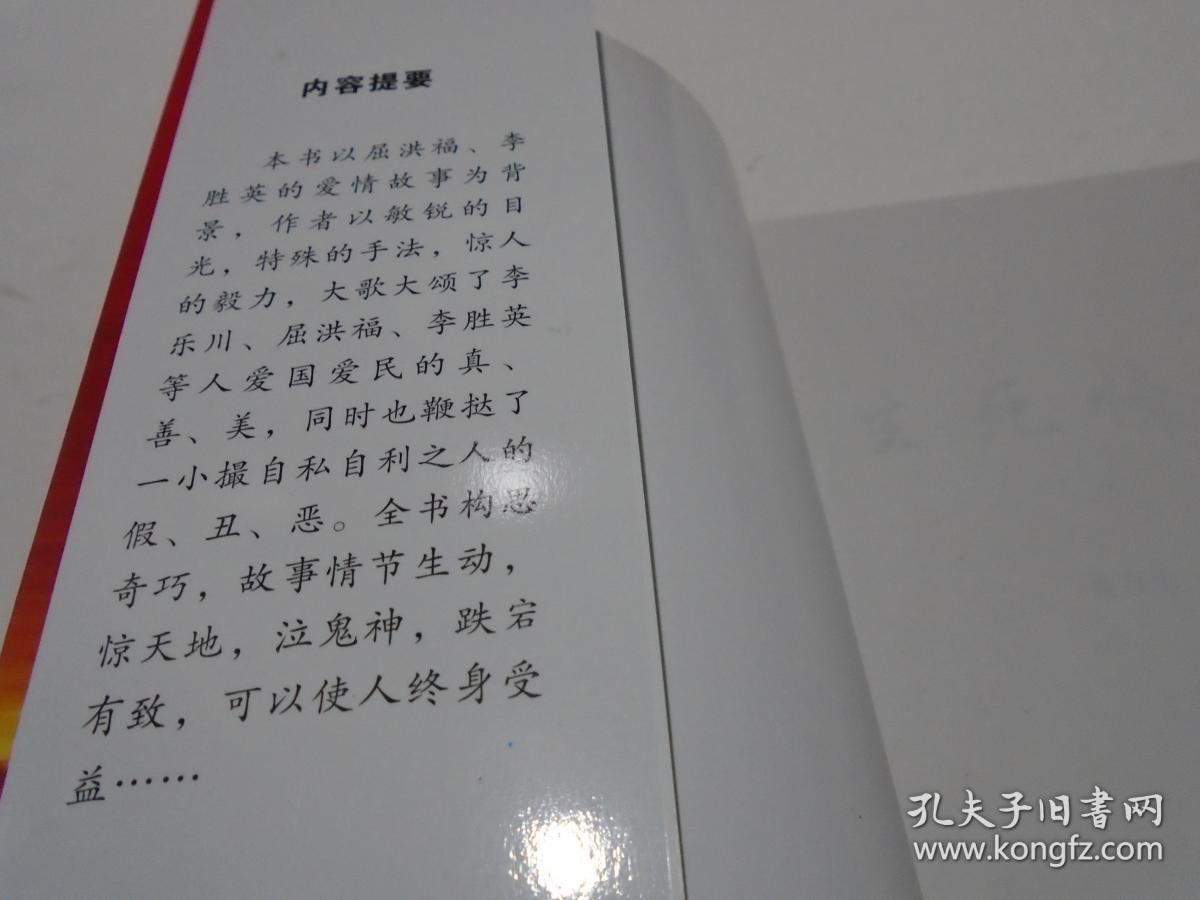 内容提要
本书以屈洪福、李
胜英的爱情故事为背
景，作者以敏锐的目
光，特殊的手法，惊人
的毅力，大歌大颂了李
乐川、屈洪福、李胜英
等人爱国爱民的真、
善、美，同时也鞭挞了
一小撮自私自利之人的
假、丑、恶。全书构思
奇巧，故事情节生动，
惊天地，泣鬼神，跌宕
有致，可以使人终身受
益……
孔夫子旧书网
www.kongfz.com